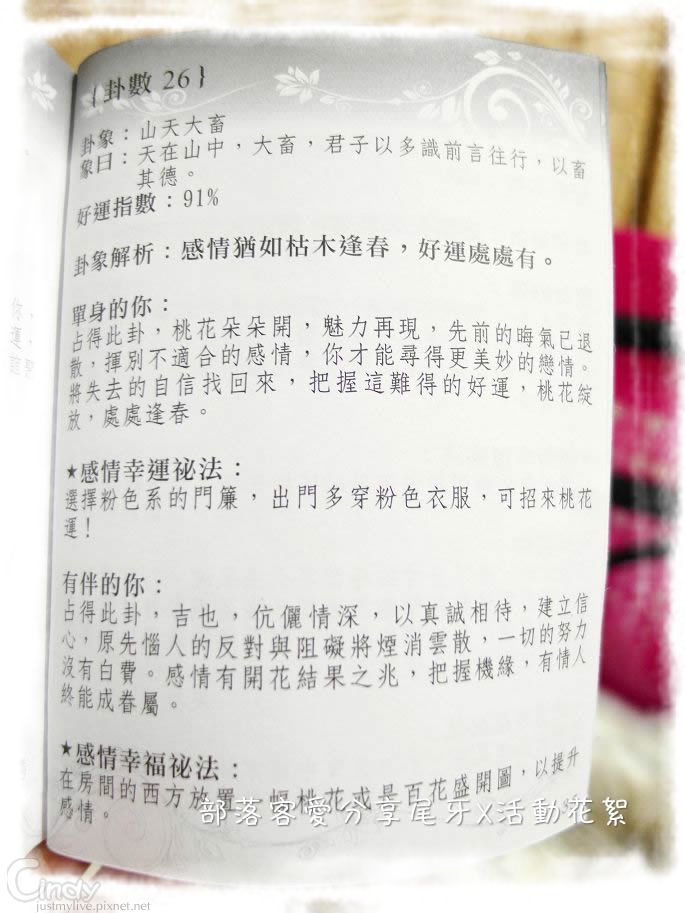 {卦數 26}
卦象：山天大畜
象曰：天在山中，大畜，君子以多識前言往行，以畜
其德。
好運指數：91%
卦象解析：感情猶如枯木逢春，好運處處有。
單身的你：
占得此卦，桃花朵朵開，魅力再現，先前的晦氣已退
散，揮別不適合的感情，你才能尋得更美妙的戀情。
將失去的自信找回來，把握這難得的好運，桃花綻
放，處處逢春。
★感情幸運祕法：
選擇粉色系的門簾，出門多穿粉色衣服，可招來桃花
運！
有伴的你：
占得此卦，吉也，伉儷情深，以真誠相待，建立信
心，原先惱人的反對與阻礙將煙消雲散，一切的努力
沒有白費。感情有開花結果之兆，把握機緣，有情人
終能成眷屬。
★感情幸福祕法：
在房間的西方放置一幅桃花或是百花盛開圖，以提升
感情。
部落客愛分享尾牙X活動花絮
Cindy
justmylive.pixnet.net